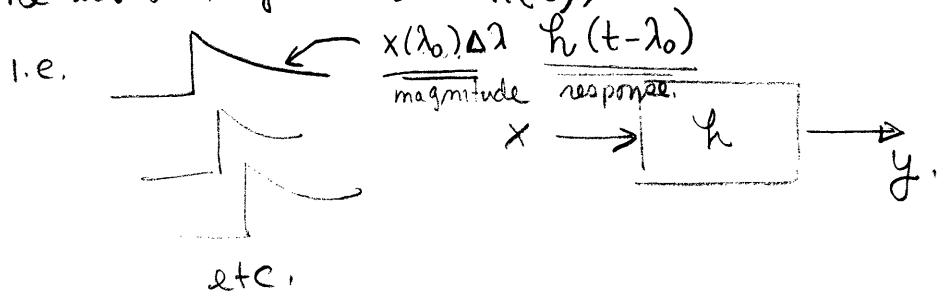 i.e. x(λ₀) Δλ h(t-λ₀)
magnitude response.
x h y.
etc.